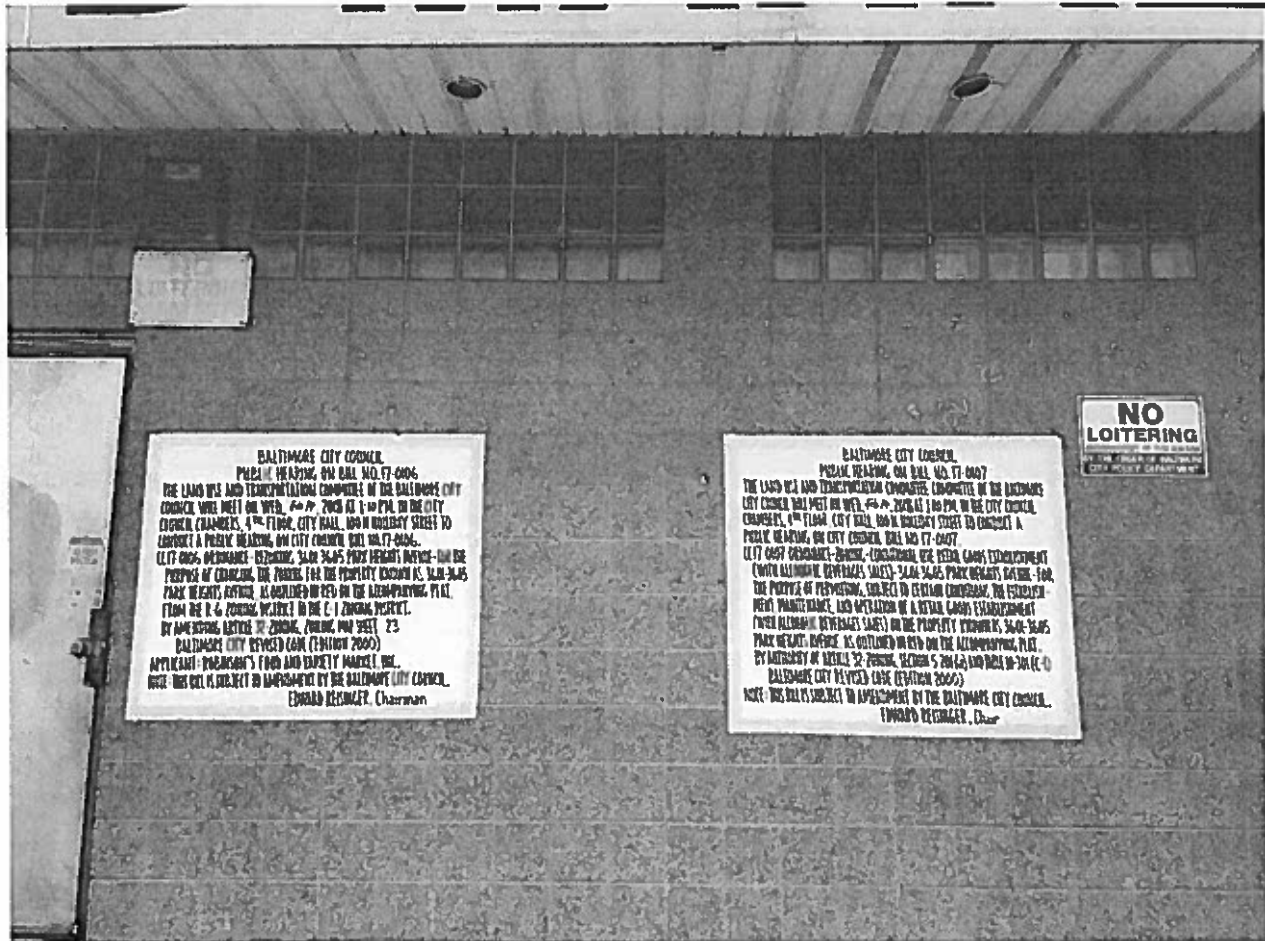 LOITERING
BALTIMORE CITY COUNCIL
PUBLIC HEARING ON BILL NO. 17-0106
THE LAND USE AND TRANSPORTATION COMMITTEE OF THE BALTIMORE CITY
COUNCIL WILL MEET ON WED, 2018 AT 1:10 PM, IN THE CITY
COUNCIL CHAMBERS, 4TH FLOOR, CITY HALL, 100 N HOLLIDAY STREET TO
CONDUCT A PUBLIC HEARING ON CITY COUNCIL BILL NO. 17-0106.
ORDINANCE - REZONING, PARK HEIGHTS AVENUE - FOR THE
PURPOSE OF CHANGING THE ZONING FOR THE PROPERTY KNOWN AS
PARK HEIGHTS AVENUE, AS OUTLINED IN RED ON THE ACCOMPANYING PLAT,
FROM THE R-6 ZONING DISTRICT TO THE C-1 ZONING DISTRICT.
BY AMENDING ARTICLE 32-ZONING, ZONING MAP SHEET 23
BALTIMORE CITY REVISED CODE (EDITION 2000)
APPLICANT: ROBINSON'S FOOD AND VARIETY MARKET, INC.
NOTE: THIS BILL IS SUBJECT TO AMENDMENT BY THE BALTIMORE CITY COUNCIL.
EDWARD REISINGER, Chairman
BALTIMORE CITY COUNCIL
PUBLIC HEARING ON BILL NO. 17-0107
THE LAND USE AND TRANSPORTATION COMMITTEE, COMMITTEE OF THE BALTIMORE
CITY COUNCIL WILL MEET ON WED, 2018 AT 1:10 PM, IN THE CITY COUNCIL
CHAMBERS, 4TH FLOOR, CITY HALL, 100 N HOLLIDAY STREET TO CONDUCT A
PUBLIC HEARING ON CITY COUNCIL BILL NO 17-0107.
ORDINANCE - ZONING - CONDITIONAL USE RETAIL GOODS ESTABLISHMENT
(WITH ALCOHOLIC BEVERAGES SALES) - PARK HEIGHTS AVENUE - FOR
THE PURPOSE OF PERMITTING, SUBJECT TO CERTAIN CONDITIONS, THE ESTABLISH-
MENT, MAINTENANCE, AND OPERATION OF A RETAIL GOODS ESTABLISHMENT
(WITH ALCOHOLIC BEVERAGES SALES) ON THE PROPERTY KNOWN AS
PARK HEIGHTS AVENUE, AS OUTLINED IN RED ON THE ACCOMPANYING PLAT.
BY AUTHORITY OF ARTICLE 32-ZONING, SECTION
BALTIMORE CITY REVISED CODE (EDITION 2000)
NOTE: THIS BILL IS SUBJECT TO AMENDMENT BY THE BALTIMORE CITY COUNCIL.
EDWARD REISINGER, Chair
NO
LOITERING
CITY POLICE DEPARTMENT